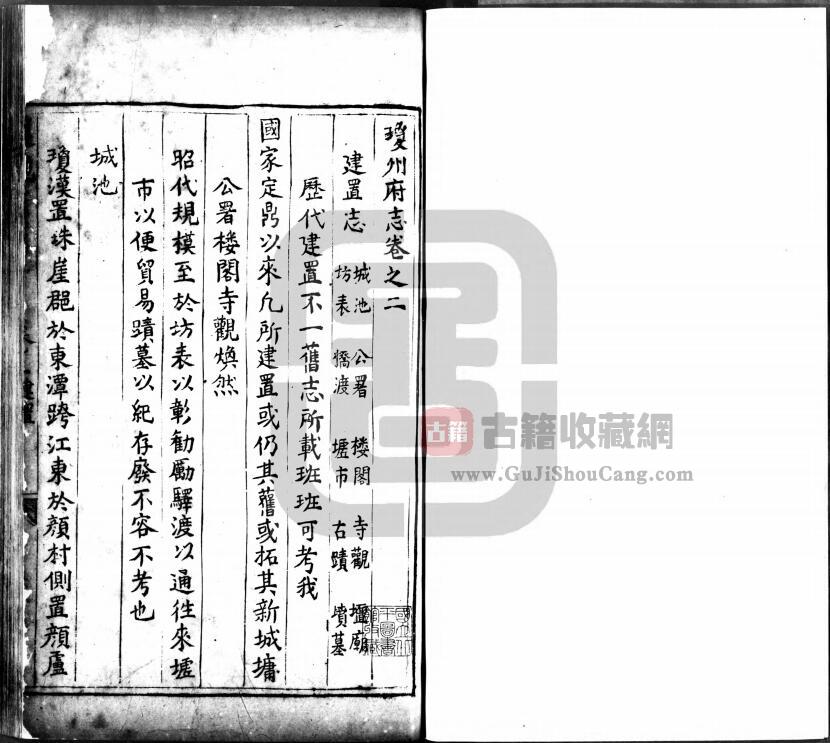 瓊州府志卷之二
建置志 城池 公署 楼閣 寺觀 壇廟
坊表 橋渡 墟市 古蹟 墳墓
歷代建置不一舊志所載班班可考我
國家定鼎以來凢所建置或仍其舊或拓其新城墉
公署楼閣寺觀煥然
昭代規模至於坊表以彰勸勵驛渡以通徃來墟
市以便貿易蹟墓以紀存廢不容不考也
城池
瓊漢置珠崖郡於東潭跨江東於顔村側置顔盧
古籍
古籍收藏網
www.GuJiShouCang.com